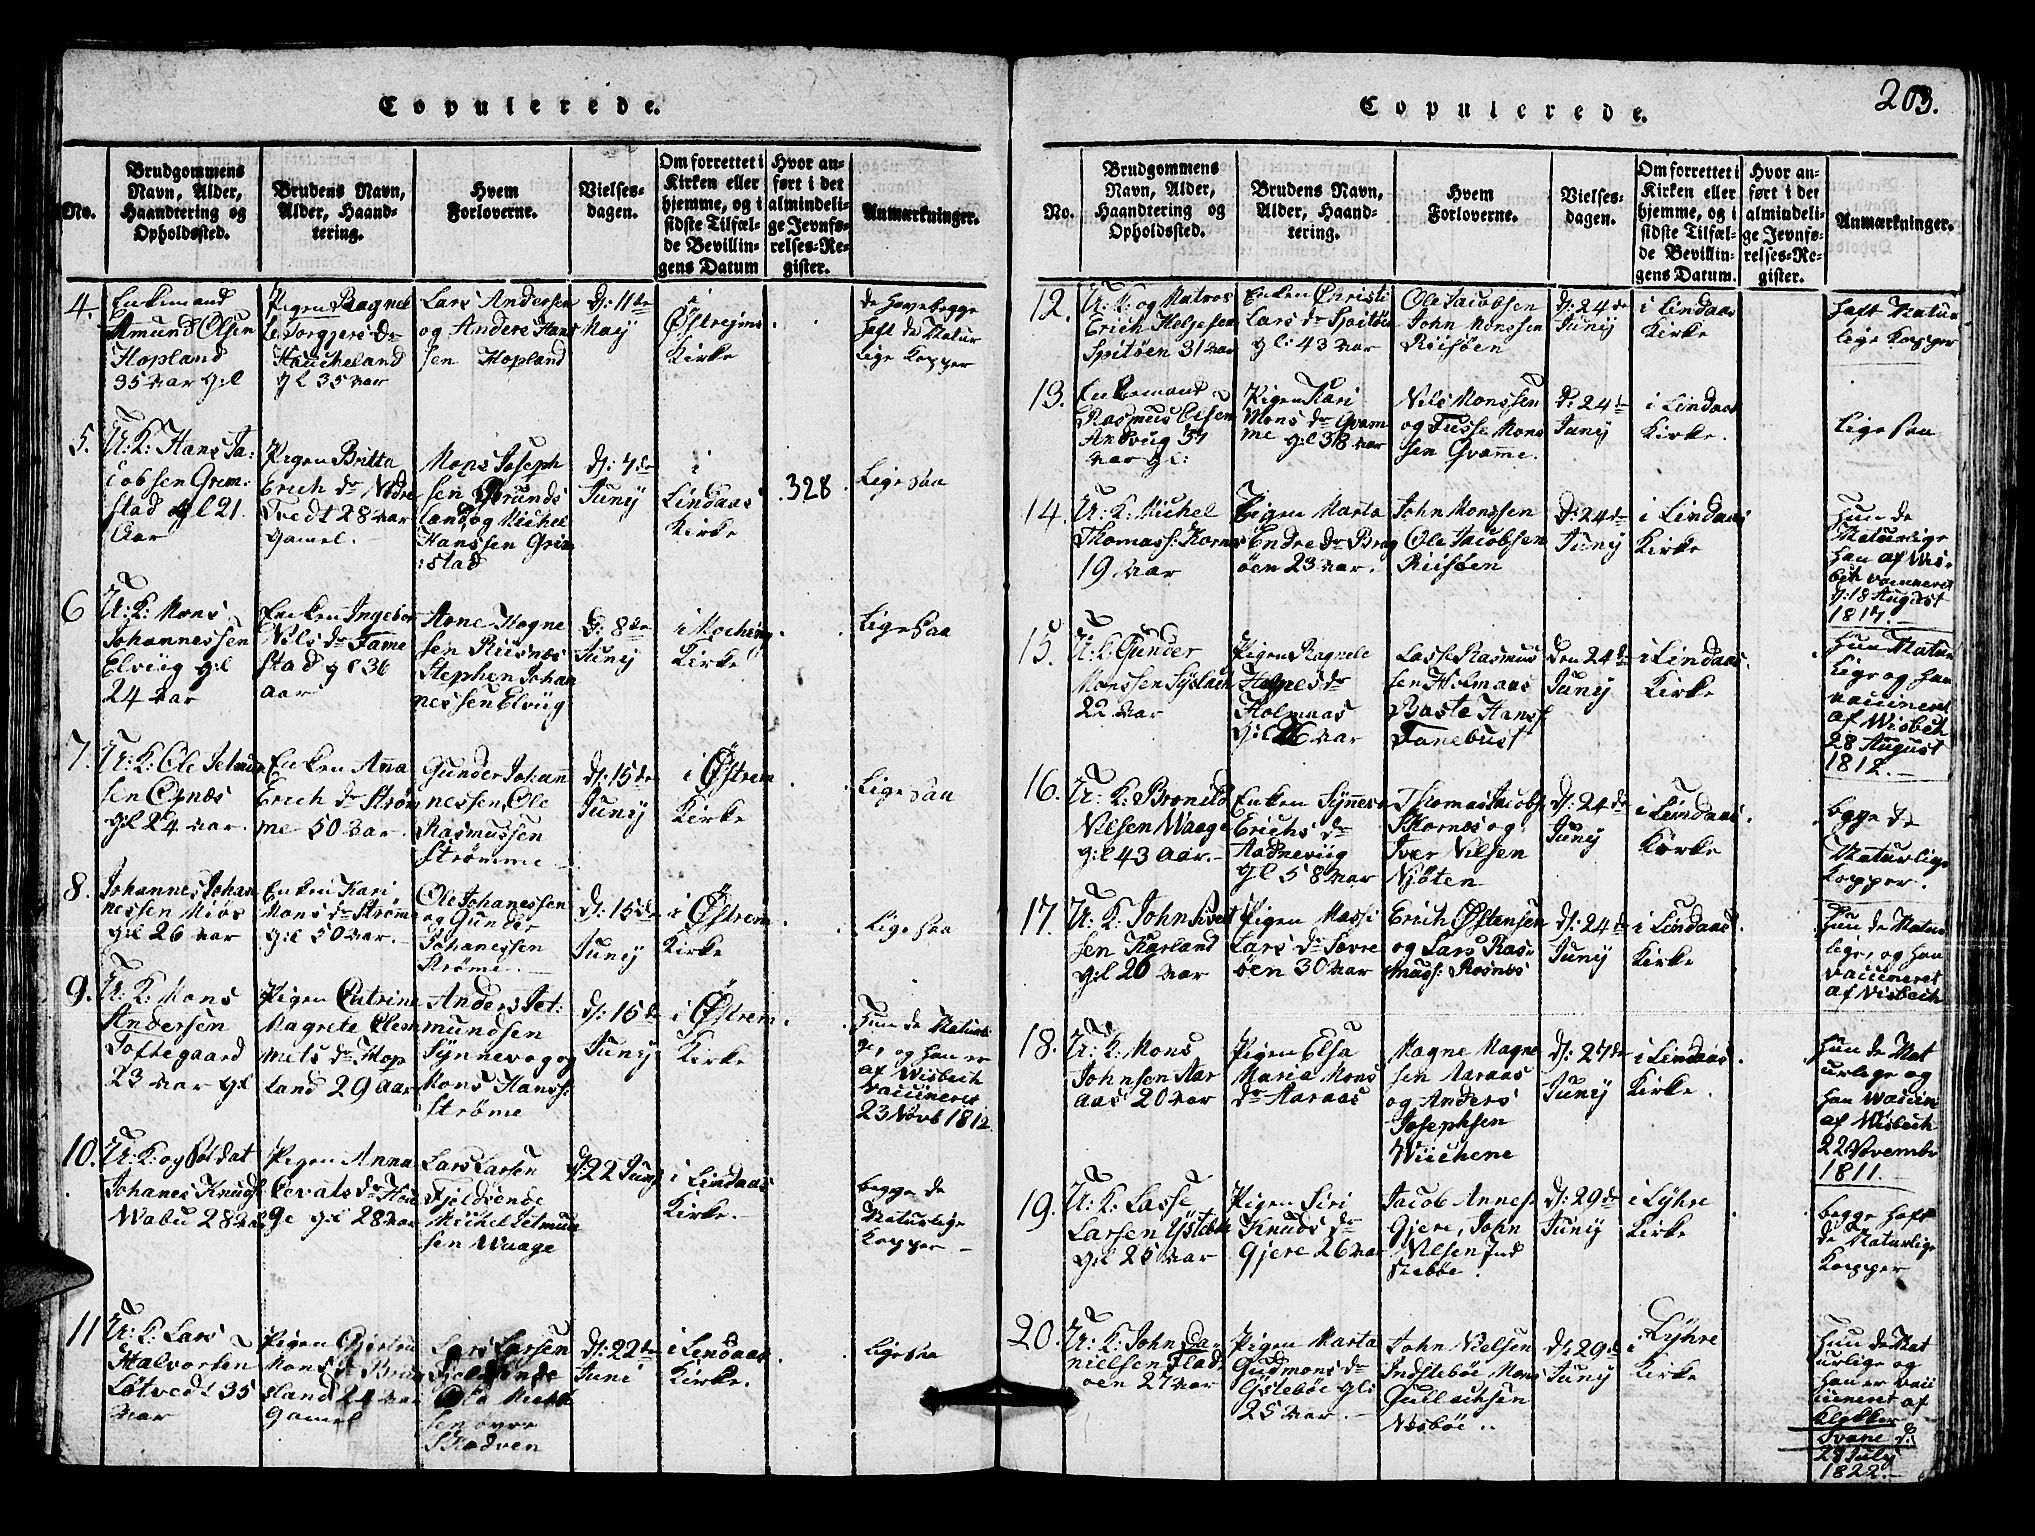 Copulerede.
No.
Brudgommens
Navn, Alder,
Haandtering og
Opholdssted.
Brudens Navn,
Alder, Haand-
tering.
Hvem
Forloverne.
Vielses-
dagen.
Om forrettet i
Kirken eller
hjemme, og i
sidste Tilfæl-
de Bevillin-
gens Datum
Hvor an-
ført i det
almindeli-
ge Jevnfø-
relses-Re-
gister.
Anmærkninger.
4.
Enkemand
Amund Olsen
Hopland
35 Aar gl
Pigen Ragnel
Torgjers Dr
Haucheland
gl 35 Aar
Lars Andersen
og Anders Hans
sen Hopland
D: 11de
Maij
i
Østrejms
Kirke
de have begge
haft de Natur
lige Kopper
5.
U: K: Hans Ja:
cobsen Grim-
stad gl 21
Aar
Pigen Britta
Erich Dr Nedre
Tvedt 28 Aar
gamel.
Mons Joseph
sen
land og Michel
Hanssen Grim
:stad
D: 7de
Junij
i
Lindaas
Kirke
328.
Lige saa
6
U: K: Mons
Johannessen
Elviig gl
24 Aar
Enken Ingebor
Nils Dr Fame
stad gl 36
aar
Arne Mogne
sen Riisnæs
Stephen Johan
nessen Elviig
D: 8de
Junij
i Moching
Kirke
Lige saa
7.
U: K: Ole Jetmun
sen
gl 24 Aar.
Enken Anna
Erich Dr Strøm
me 50 Aar.
Gunder Johan
nessen, Ole
Rasmussen
Strømme
D: 15de
Junij
i Østrem
Kirke
Lige saa
8.
Johannes Johan
nessen Miøs
gl 26 Aar
Enken Kari
Mons Dr Strøme
gl 50 Aar.
Ole Johanessen
og Gunder
Johanessen
Strøme.
D: 15de
Junij
i Østrem
Kirke
Lige saa
9.
U: K: Mons
Andersen
Toftegaard
23 Aar gl
Pigen Catrine
Magrete Clem
mets Dr Hop
land 29 aar
Anders Jet:
mundsen
Synnevog og
Mons Hanss:
Strøme
D: 15de
Junij
i Østrem
Kirke
Hun de Naturli
ge, og han er
af Wisbech
vaccineret
23 Novb 1812.
10.
U: K: og Soldat
Johanes Knuds
Wabu 28 Aar
Pigen Anna
Cevals Dr
ge gl 28 Aar
Lars Larsen
Fjeldsende
Michel Jetmun
sen Waage
D: 22 Junij
i Lindaas
Kirke.
begge de
Naturlige
Kopper
11
U: K: Lars
Halvorsen
Løtvedt 35
Aar
Pigen Gjertru
Mons Dr
land 24 Aar
Gamel
Lars Larsen
Fjeldsende
Ole
sen øvre
Skodven
D: 22de
Juni
i Lindaas
Kirke.
Lige saa
Copulerede.
203.
No.
Brudgommens
Navn, Alder,
Haandtering og
Opholdssted.
Brudens Navn,
Alder, Haand-
tering.
Hvem
Forloverne.
Vielses-
dagen.
Om forrettet i
Kirken eller
hjemme, og i
sidste Tilfæl-
de Bevillin-
gens Datum.
Hvor an-
ført i det
almindeli-
ge Jevnfø-
relses-Re-
gister.
Anmærkninger.
12.
U: K: og Matros
Erich Helgesen
Spitøen 31 Aar
Enken Christi
Lars Dr Spitøen
gl: 43 Aar
Ole Jacobsen
John Monssen
Riisøen
D: 24de
Junij
i Lindaas
Kirke
haft Natur
lige Kopper
13.
Enkemand
Rasmus Olsen
Andvug 57
Aar gl:
Pigen Kari
Mons Dr Qvam
me gl 38 Aar
Nils Monssen
og Tusse Mons
sen Qvame.
D: 24de
Junij
i Lindaas
Kirke.
Lige saa
14.
U: K: Michel
Thomass: Kornes
19 Aar
Pigen Marta
Endre Dr Brag
øen 23 Aar.
John Monssen
Ole Jacobsen
Riisøen
D: 24de
Junij
i Lindaas
Kirke
Hun de
Naturlige
han af Wis-
bech vaccineret
d: 18 August
1817.
15.
U: K: Gunder
Monssen Syslach
22 Aar
Pigen Ragnele
Helges Dr
Holmaas
gl 26 Aar
Lasse Rasmus
sen Holmaas
Baste Hanss:
Tanebust
Den 24de
Junij
i Lindaas
Kirke
Hun Natur
lige og han
vaccineret
af Wisbech
28 August
1812.
16.
U: K: Bronild
Nilsen Waage
gl 43 Aar.
Enken Synneva
Erichs Dr
Aadneviig
gl 58 Aar
Thomas Jacobs
Skornæs og
Iver Nilsen
Njøten
D: 24de
Junij
i Lindaas
Kirke
begge de
Naturlige
Kopper.
17.
U: K: John Siurt
sen Karland
gl 26 Aar
Pigen Massi
Lars Dr Sævre
øen 30 Aar
Erich Østensen
og Lars Ras-
muss: Risnes
D: 24de
Junij
i Lindaas
Kirke
Hun de Natur
lige, og han
vaccineret
af Wisbech
18.
U: K: Mons
Johnsen Aar
aas 20 Aar
Pigen Elsa
Maria Mons
Dr Aaraas
Magne Magne
sen Aaraas
og Anders
Josephsen
Wiichene
D: 27de
Junij
i Lindaas
Kirke.
hun de Nat
urlige og
han Waccin
af Wisbech
22 Novembr
1811.
19.
U: K: Lasse
Larsen Ystebøe
gl 25 Aar
Pigen Siri
Knuds Dr
Gjere 26 Aar
Jacob Annes:
Gjere, John
Nilsen Ind
stebøe.
D: 29de
Junij
i Lyhre
Kirke
begge haft
de Naturlige
Kopper
20.
U: K: John Da
nielsen Flad
øen 27 Aar
Pigen Marta
Gudmons Dr
Ystebøe gl:
25 Aar.
John Nielsen
Indstebøe Mons
Gullachsen
Nesbøe..
D: 29de
Junij
i Lyhre
Kirke
Hun de Nat
urlige og
han er vacc
ineret af
Klokker
Svane d:
28 July
1822.